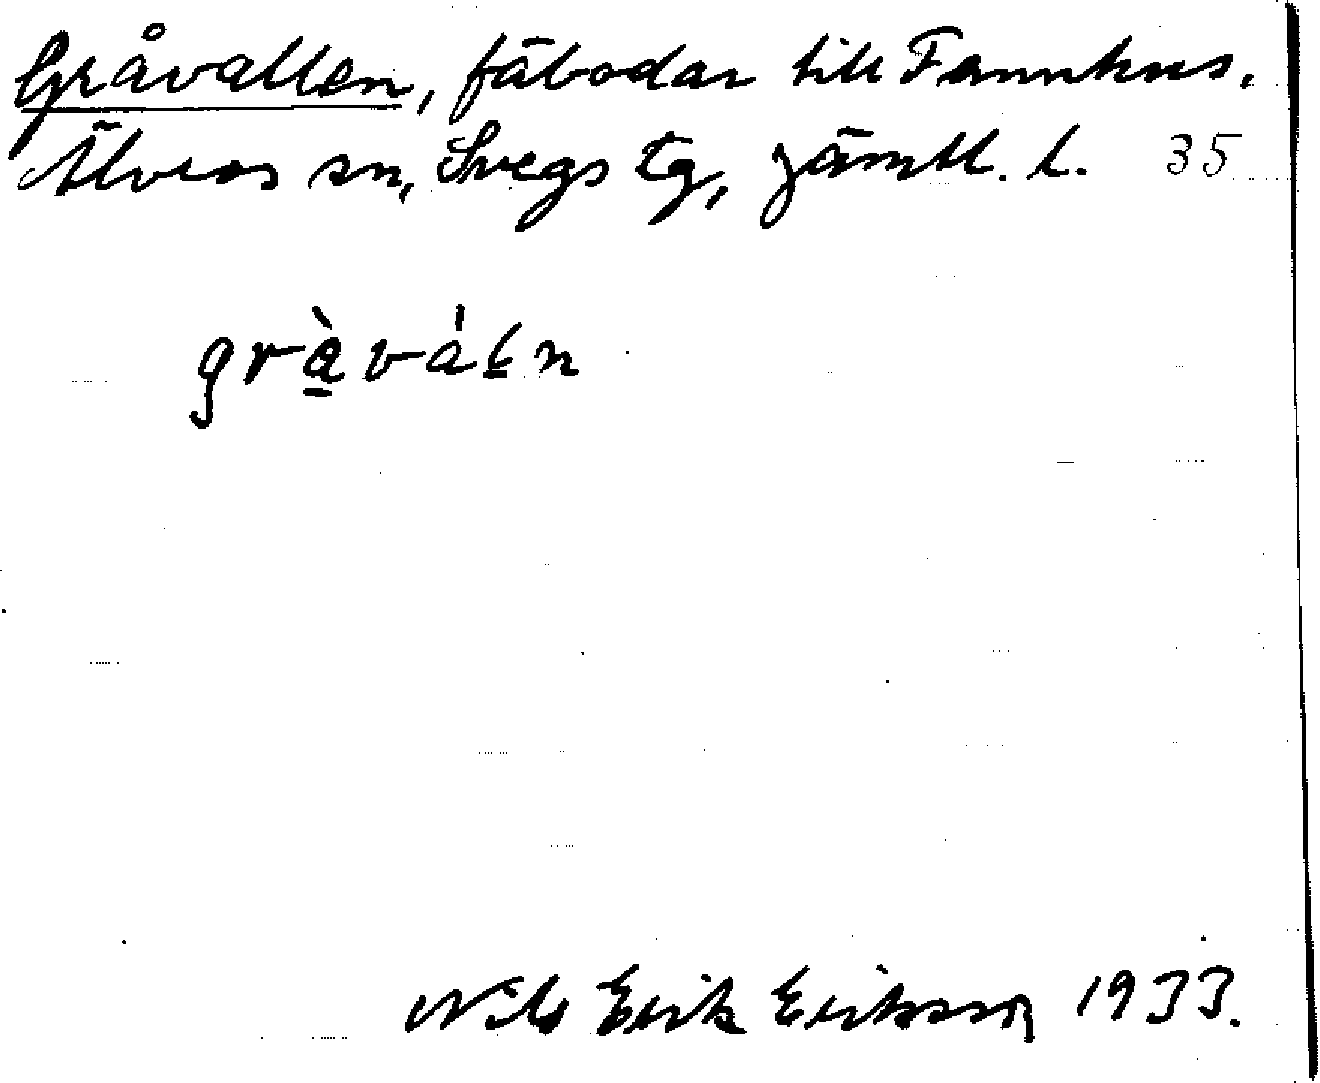 Gråvallen, fäbodar till Fannhus.
Älvros sn, Svegs tg, Jämtl. l. 35
gràváłn
Nils Erik Eriksson 1933.